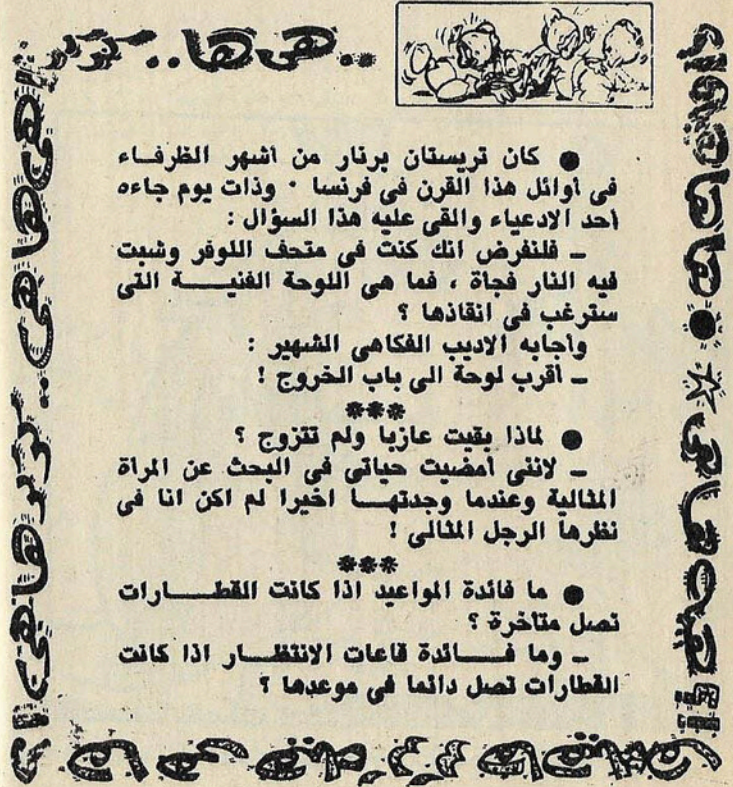 ..هى ها..
● كان تريستان برنار من أشهر الظرفاء
فى أوائل هذا القرن فى فرنسا ٠ وذات يوم جاءه
أحد الادعياء والقى عليه هذا السؤال :
ـ فلنفرض انك كنت فى متحف اللوفر وشبت
فيه النار فجاة ، فما هى اللوحة الفنيـــة التى
سترغب فى انقاذها ؟
وأجابه الاديب الفكاهى الشهير :
ـ أقرب لوحة الى باب الخروج !
***
● لماذا بقيت عازبا ولم تتزوج ؟
ـ لاننى أمضيت حياتى فى البحث عن المراة
المثالية وعندما وجدتهـــا اخيرا لم اكن انا فى
نظرها الرجل المثالى !
***
● ما فائدة المواعيد اذا كانت القطـــارات
تصل متاخرة ؟
ـ وما فـــائدة قاعات الانتظـــار اذا كانت
القطارات تصل دائما فى موعدها ؟